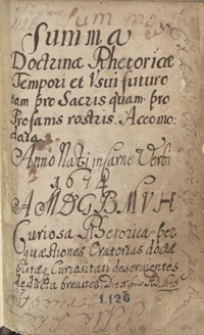 Summa
Doctrinæ Rhetoricæ
Tempori et Vsui futuro
tam pro Sacris quam pro
Profanis rostris. Accomo:
data
Anno Nati in Carne Verbi
1674
A M D G B M V H
Curiosa Rhetorica per
quæstiones Oratorias doctæ
Curiositati deservientes
deducta breviter
1.120